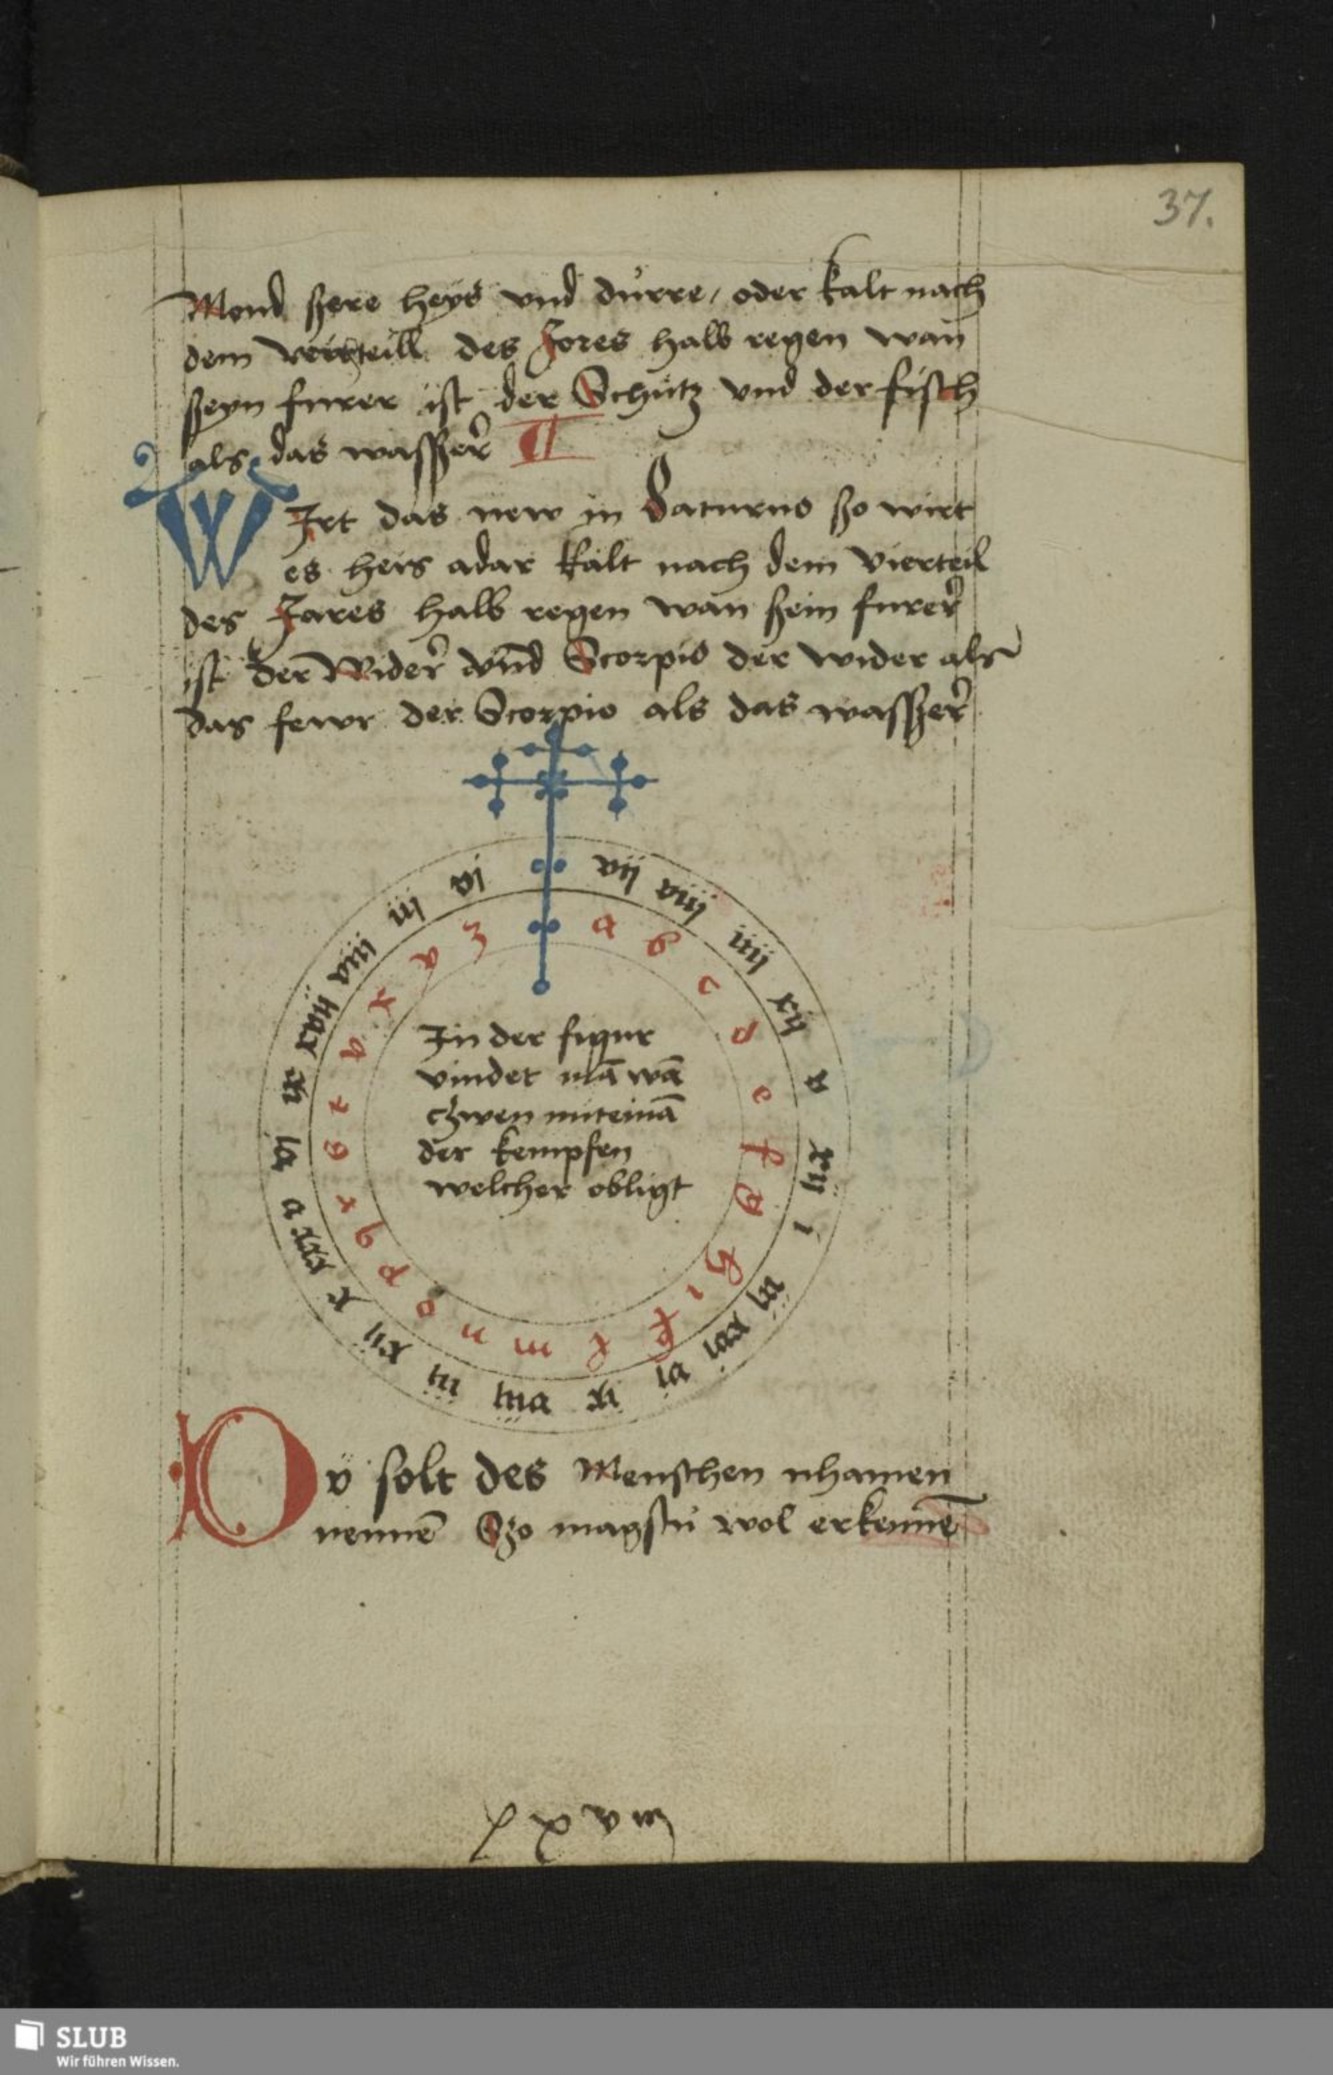 37.
Mond szere heys vnd dürre, oder kalt nach
dem vierteill des Jores halb regen wan
szeyn furer ist der Schütz vnd der fisch
als das waszer
WIrt das new in Saturno szo wirt
es heis adar kalt nach dem vierteil
des Jares halb regen wan szein furer
ist der Wider vnd Scorpio der wider als
das fewr der Scorpio als das wasszer
vij viiij iiij xij v xij i iij xvi vi ix viij iij xij x xxx v ij xij xvij viiij iij vi
a b c d e f g h i k l m n o p q r s t v x y z
In der figur
vindet mā wā
czwen miteinā
der kempfen
welcher obligt
DV solt des Menschen nhamen
nennē Szo magstu wol erkennē
lxxviij
SLUB
Wir führen Wissen.